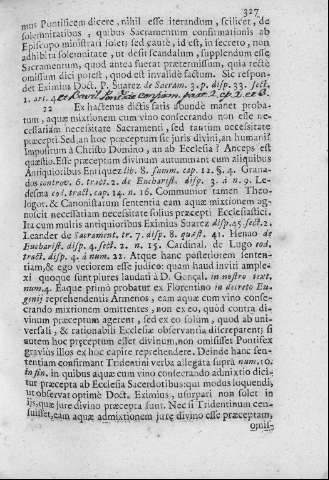 327
mus Pontificem dicere, nihil esse iterandum, scilicet, de
solemnitatibus, quibus Sacramentum confirmationis ab
Episcopo ministrari solet; sed cautè, id est, in secreto, non
adhibita solemnitate, ut desit scandalum, supplendum esse
Sacramentum, quod antea fuerat prætermissum, quia rectè
omissum dici potest, quod est invalidè factum. Sic respon-
det Eximius Doct. P. Suarez de Sacram. 3. p. disp. 33. sect.
1. art. 4.
22 Ex hactenus dictis satis abundè manet proba-
tum, aquæ mixtionem cum vino consecrando non esse ne-
cessariam necessitate Sacramenti, sed tantùm necessitate
præcepti. Sed, an hoc præceptum sit juris divini, an humani?
Impositum à Christo Domino, an ab Ecclesia? Anceps est
quæstio. Esse præceptum divinum autummant cum aliquibus
Antiquioribus Enriquez lib. 8. summ. cap. 12. §. 4. Grana-
dos controv. 6. tract. 2. de Eucharist. disp. 3. à n. 9. Le-
desma tract. cap. 14. n. 16. Communior tamen Theo-
logor. & Canonistarum sententia eam aquæ mixtionem ag-
noscit necessariam necessitate solius præcepti Ecclesiastici.
Ita cum multis antiquioribus Eximius Suarez disp. 45. sect. 2.
Leander de Sacrament. tr. 7. disp. 8. quæst. 41. Henao de
Eucharist. disp. 4. sect. 2. n. 15. Cardinal. de Lugo eod.
tract. disp. 4. à num. 22. Atque hanc posteriorem senten-
tiam, & ego veriorem esse judico: quam haud inviti ample-
xi quoque sunt plures laudati à D. Gonçal. in nostr. text.
num. 4. Eâque primò probatur ex Florentino in decreto Eu-
genij reprehendentis Armenos, eam aquæ cum vino conse-
crando mixtionem omittentes, non ex eo, quòd contra di-
vinum præceptum agerent, sed ex eo solum, quod ab uni-
versali, & rationabili Ecclesiæ observantia discreparent; si
autem hoc præceptum esset divinum, non omisisset Pontifex
gravius illos ex hoc capite reprehendere. Deinde hanc sen-
tentiam confirmant Tridentini verba allegata suprà num. 10.
in fin. in quibus aquæ cum vino consecrando admixtio dici-
tur præcepta ab Ecclesia Sacerdotibus: qui modus loquendi,
ut observat optimè Doct. Eximius, usurpari non solet in
ijs, quæ jure divino præcepta sunt. Nec si Tridentinum cen-
suisset, eam aquæ admixtionem jure divino esse præceptam,
omis-